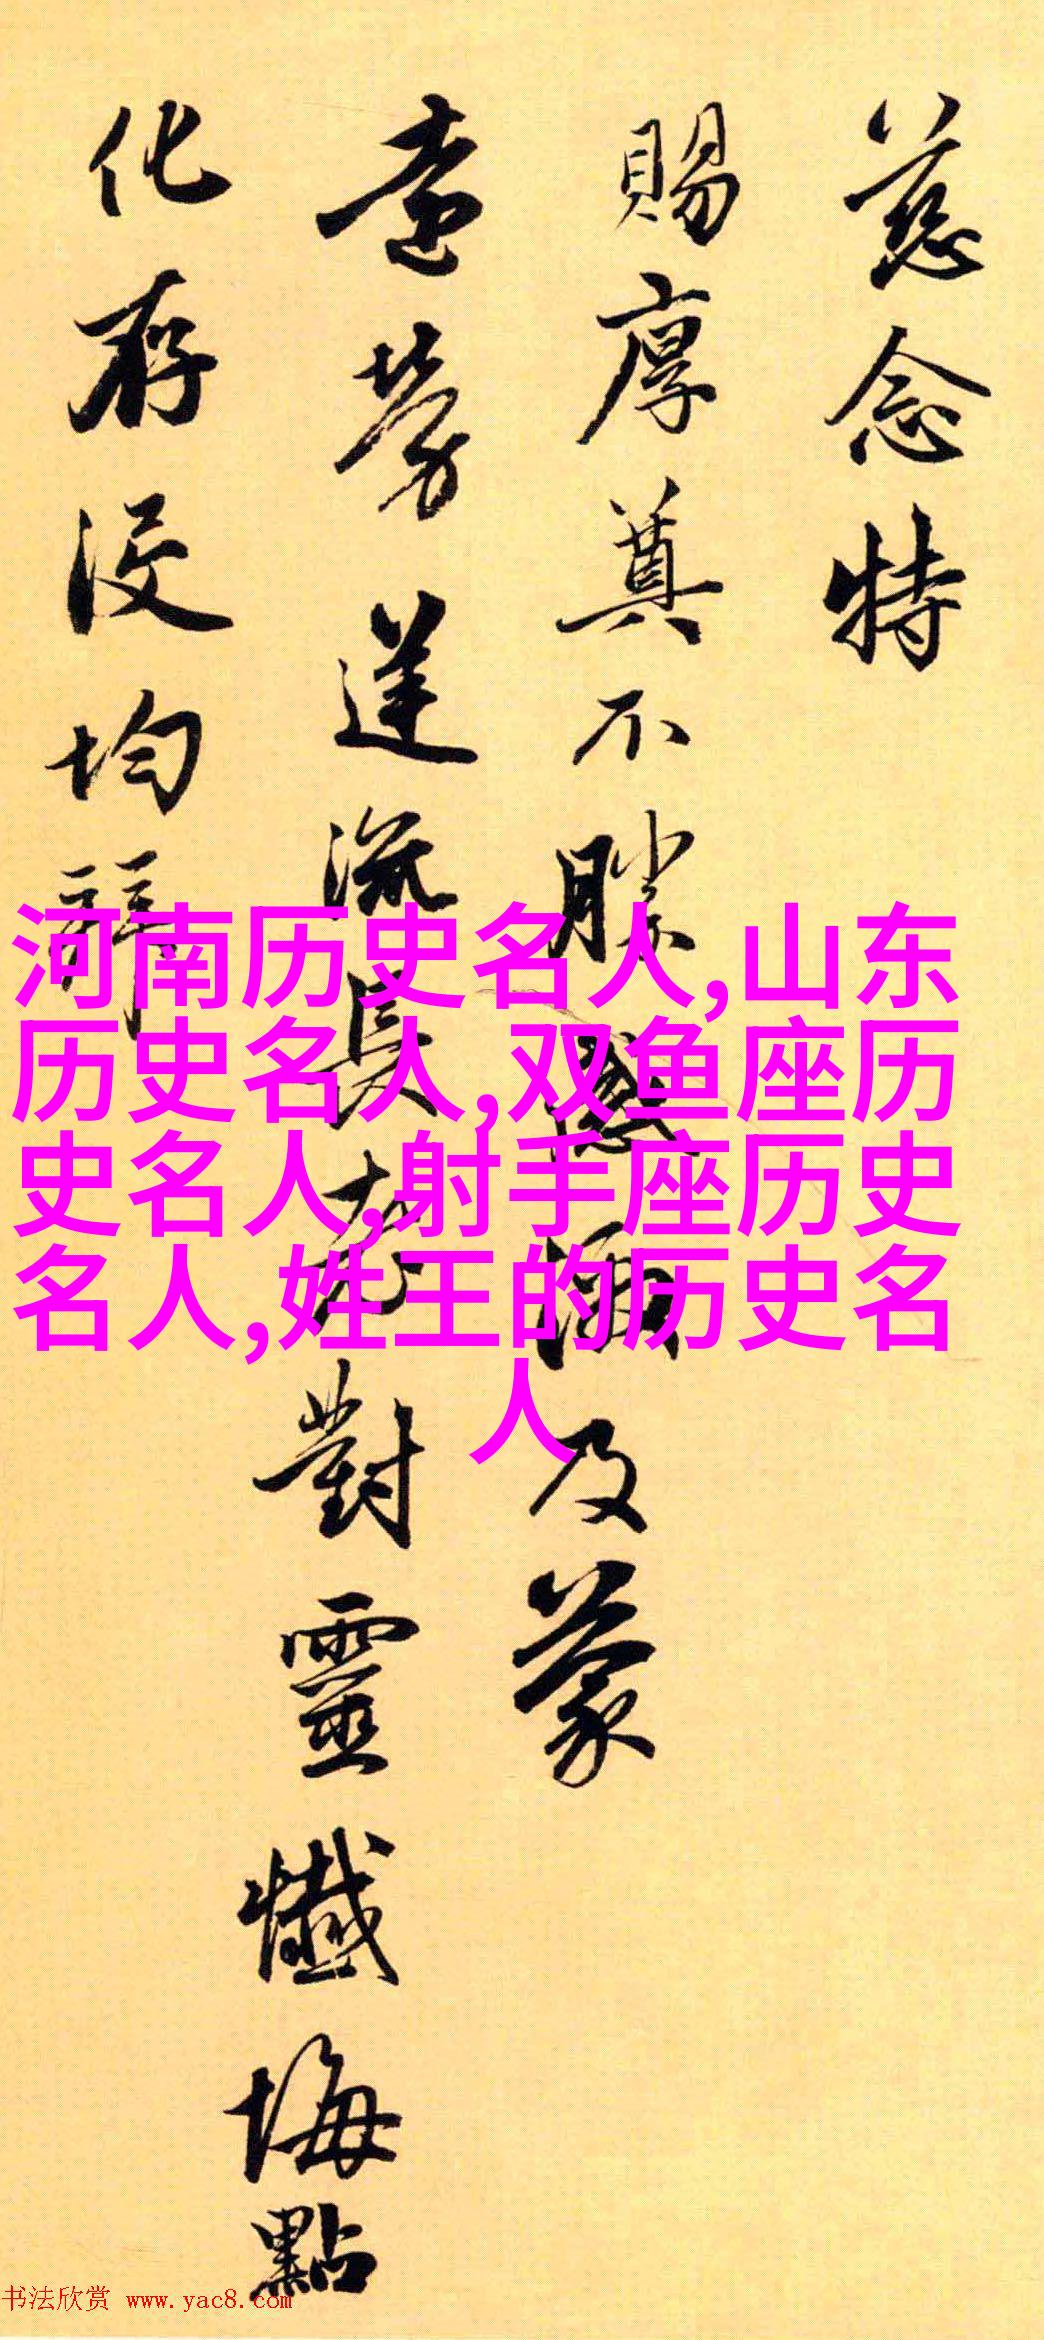 慈念特
賜厚奠不勝感及蒙
遠勞蓮流長老對靈懺悔點
化存没均
河南历史名人,山东
历史名人,双鱼座历
史名人,射手座历史
名人,姓王的历史名
人
书法欣赏 www.yac8.com